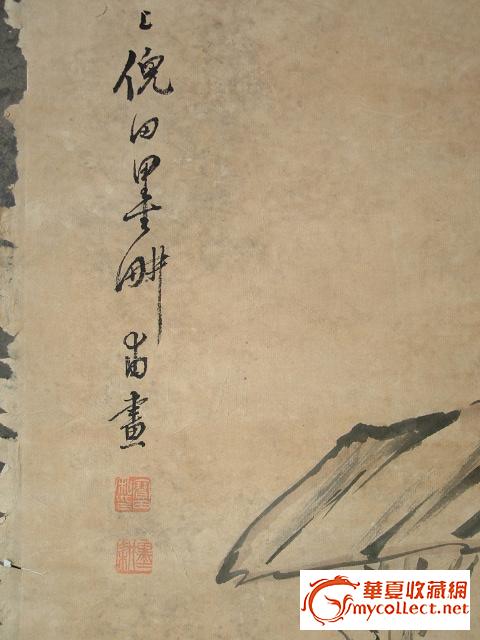 上倪田墨畊甫畫
華夏收藏網
mycollect.net